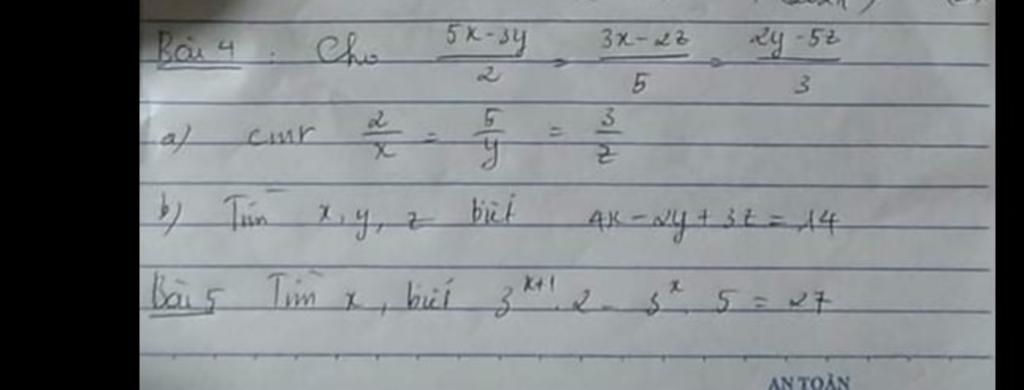 Bài 4 : Cho (5x-3y)/2 = (3x-2z)/5 = (2y-5z)/3
a) cmr 2/x = 5/y = 3/z
b) Tìm x, y, z biết 4x-2y+3z = 14
Bài 5 Tìm x, biết 3^(x+1) . 2 - 3^x . 5 = 27
AN TOÀN